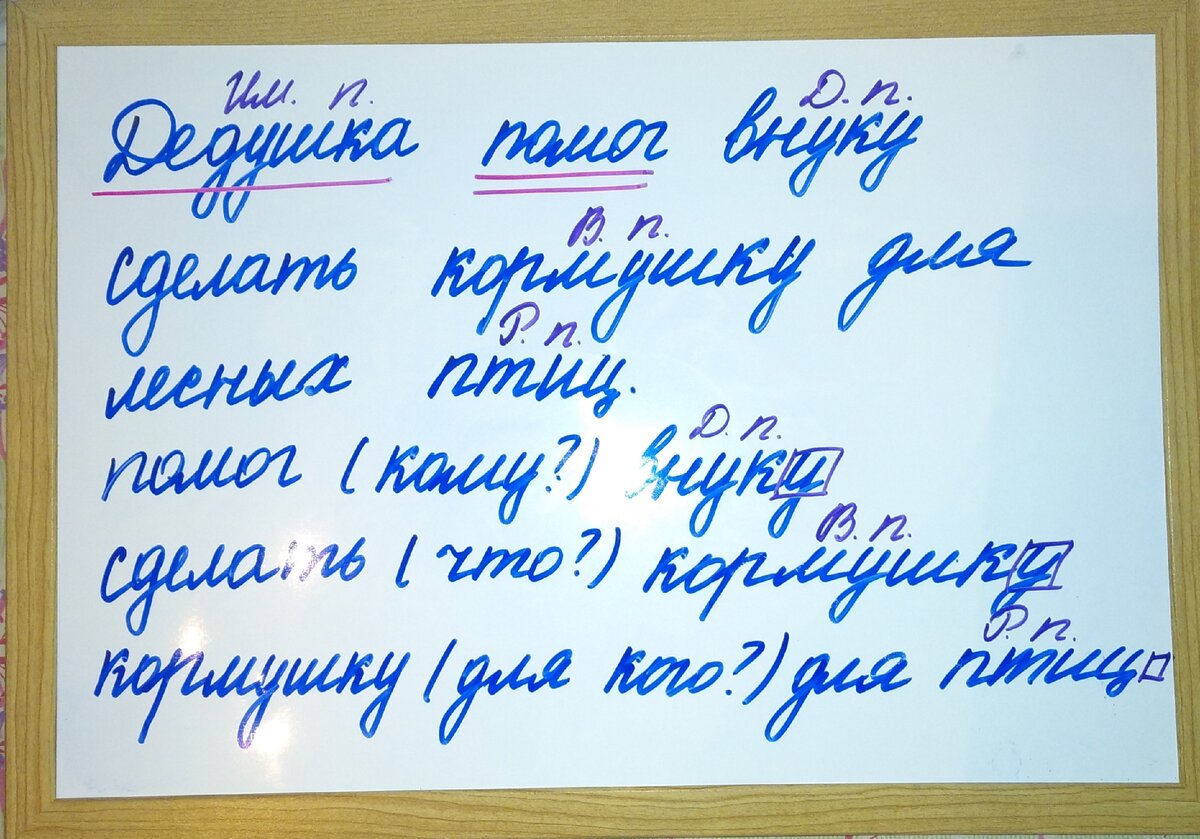 Им. п. Д. п.
Дедушка помог внуку
В. п.
сделать кормушку для
Р. п.
лесных птиц.
Д. п.
помог (кому?) внуку
В. п.
сделать (что?) кормушку
Р. п.
кормушку (для кого?) для птиц